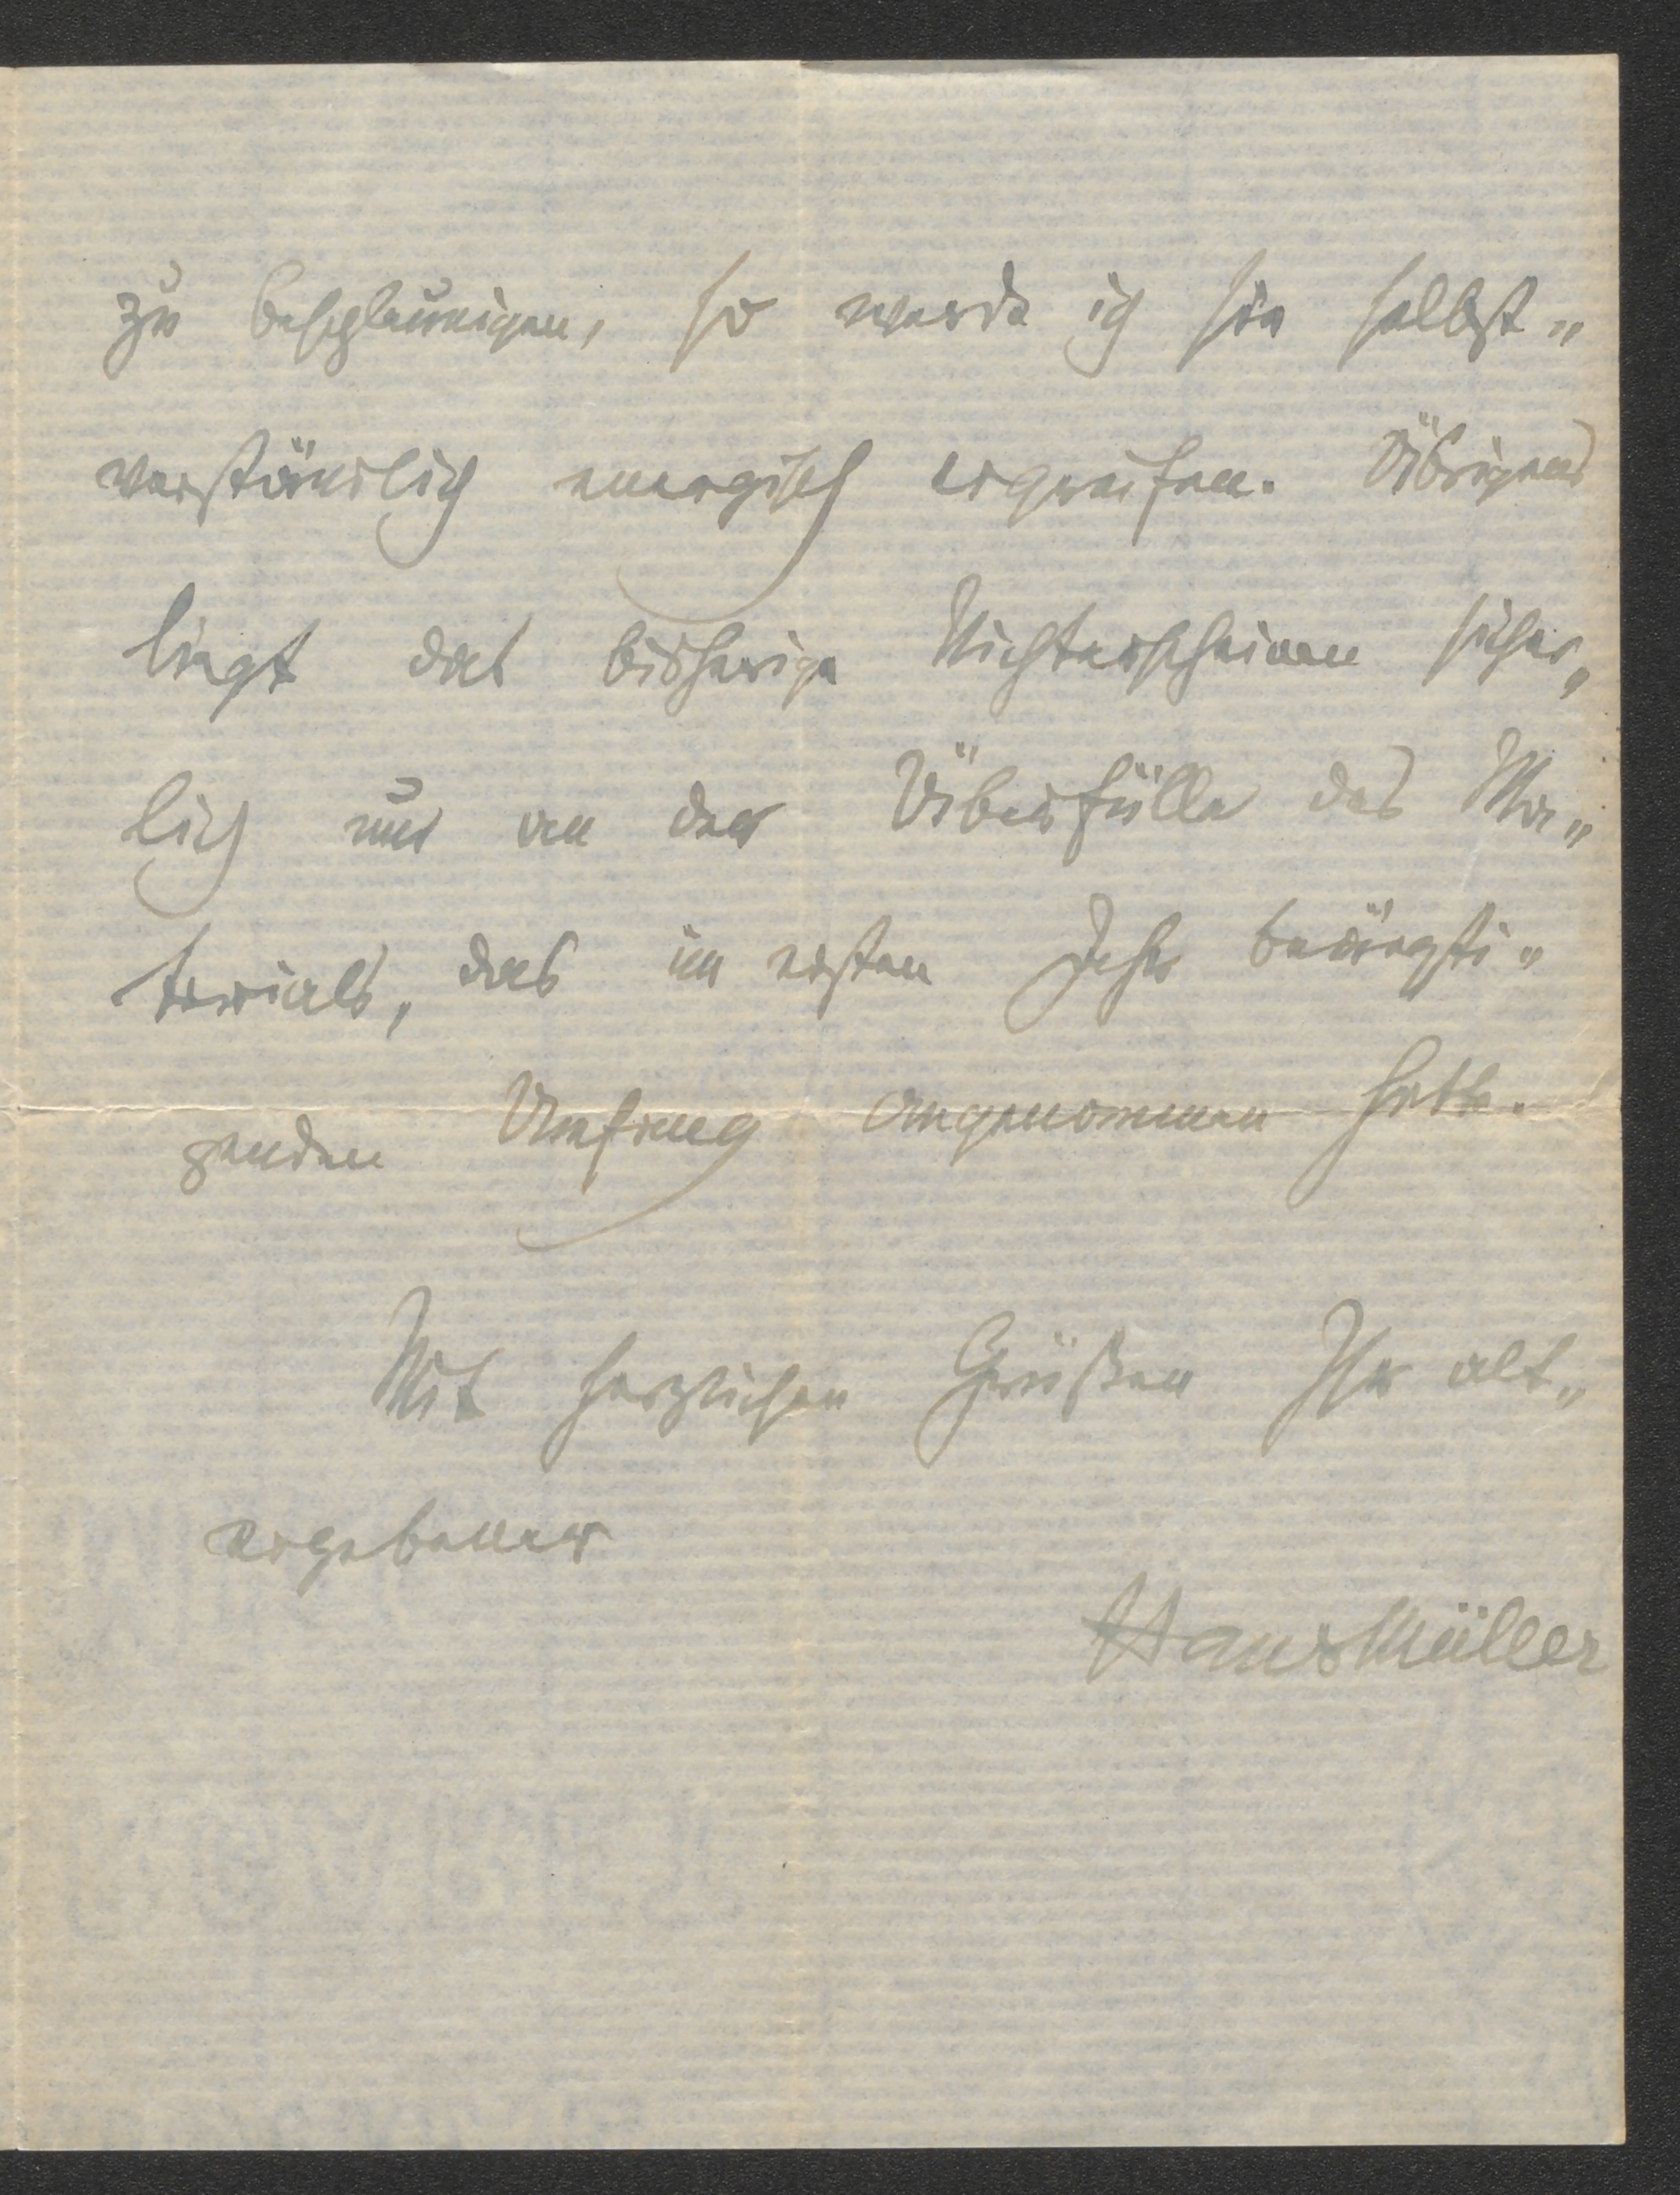 zu beschleunigen, so werde ich sie selbst„
verständlich energisch ergreifen. Übrigens
liegt das bisherige Nichterscheinen sicher„
lich nur an der Überfülle des Ma„
terials, das im ersten Jahr beängsti„
genden Umfang angenommen hatte.
Mit herzlichen Grüßen Ihr alt„
ergebener
Hans Müller